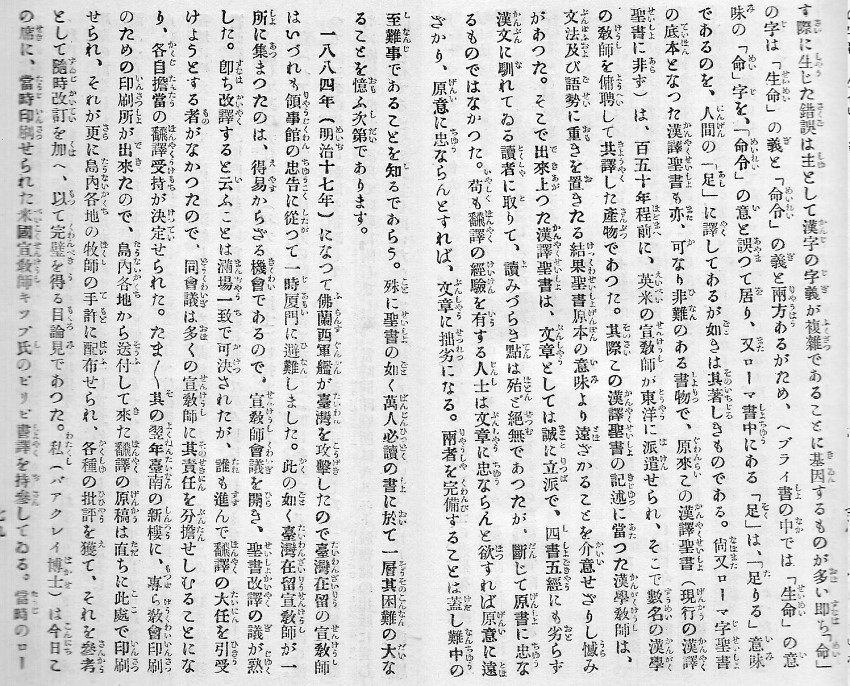 す際に生じた錯誤は主として漢字の字義が複雜であることに基因するものが多い卽ち「命」
の字は「生命」の義と「命令」の義と兩方あるがため、ヘブライ書の中では「生命」の意
味の「命」字を、「命令」の意と誤つて居り、又ローマ書中にある「足」は、「足りる」意味
であるのを、人間の「足」に譯してあるが如きは其著しきものである。尙又ローマ字聖書
の底本となつた漢譯聖書も亦、可なり非難のある書物で、原來この漢譯聖書(現行の漢譯
聖書に非ず)は、百五十年程前に、英米の宣敎師が東洋に派遣せられ、そこで數名の漢學
の敎師を傭聘して共譯した產物であつた。其際この漢譯聖書の記述に當つた漢學敎師は、
文法及び語勢に重きを置きたる結果聖書原本の意味より遠ざかることを介意せざりし憾み
があつた。そこで出來上つた漢譯聖書は、文章としては誠に立派で、四書五經にも劣らず
漢文に馴れてゐる讀者に取りて、讀みづらき點は殆ど絕無であつたが、斷じて原書に忠な
るものではなかつた。苟も飜譯の經驗を有する人士は文章に忠ならんと欲すれば原意に遠
ざかり、原意に忠ならんとすれば、文章に拙劣になる。兩者を完備することは蓋し難中の
至難事であることを知るであらう。殊に聖書の如く萬人必讀の書に於て一層其困難の大な
ることを憶ふ次第であります。
一八八四年(明治十七年)になつて佛蘭西軍艦が臺灣を攻擊したので臺灣在留の宣敎師
はいづれも領事館の忠告に從つて一時厦門に避難しました。此の如く臺灣在留宣敎師が一
所に集まつたのは、得易からざる機會であるので、宣敎師會議を開き、聖書改譯の議が熟
した。卽ち改譯すると云ふことは滿場一致で可決されたが、誰も進んで飜譯の大任を引受
けようとする者がなかつたので、同會議は多くの宣敎師に其責任を分擔せしむることにな
り、各自擔當の飜譯受持が決定せられた。たま〱其の翌年臺南の新樓に、專ら敎會印刷
のための印刷所が出來たので、島內各地から送付して來た飜譯の原稿は直ちに此處で印刷
せられ、それが更に島內各地の牧師の手許に配布せられ、各種の批評を獲て、それを參考
として隨時改訂を加へ、以て完璧を得る目論見であつた。私(バアクレイ博士)は今日こ
の席に、當時印刷せられた米國宣敎師キップ氏のピリピ書譯を持參してゐる。當時のロー